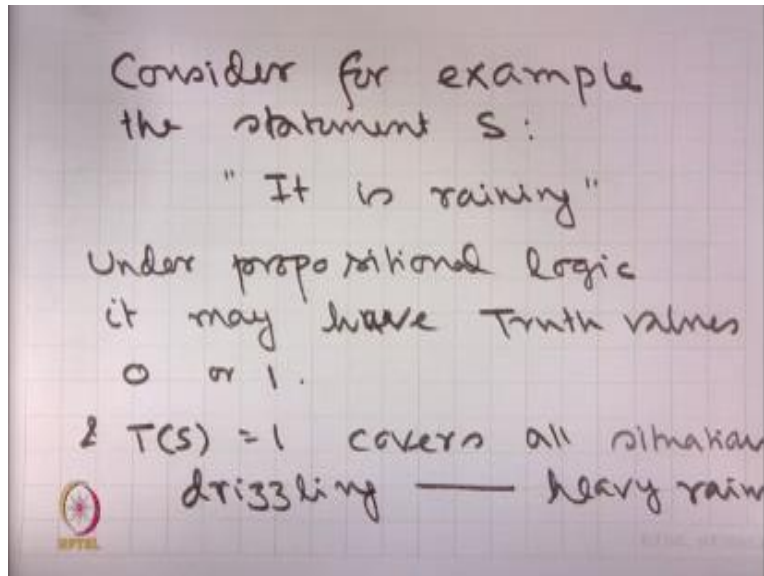 Consider for example
the statement S:
"It is raining"
Under propositional logic
it may have Truth values
0 or 1.
& T(S) = 1 covers all situation
drizzling — heavy rain
NPTEL